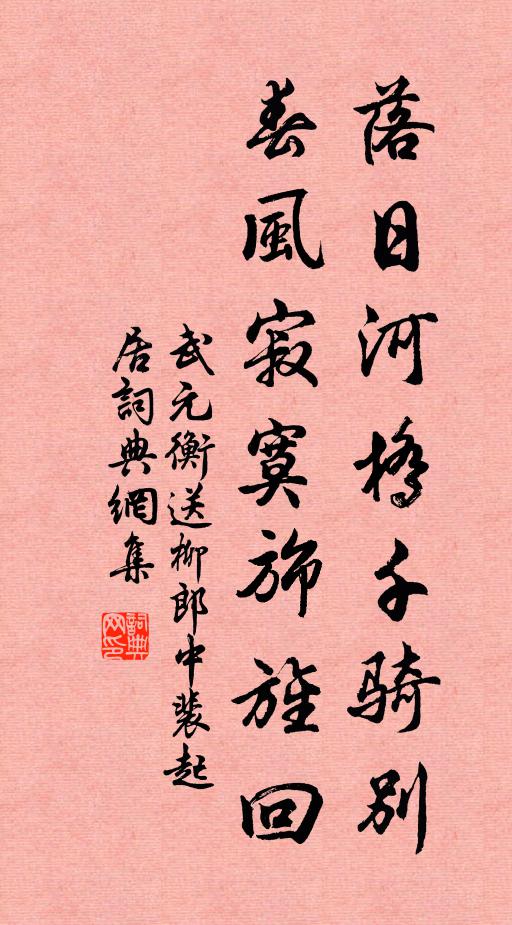 落日河橋千騎別
春風寂寞旆旌回
武元衡送柳郎中裴起
居詞典網集
詞典
网印